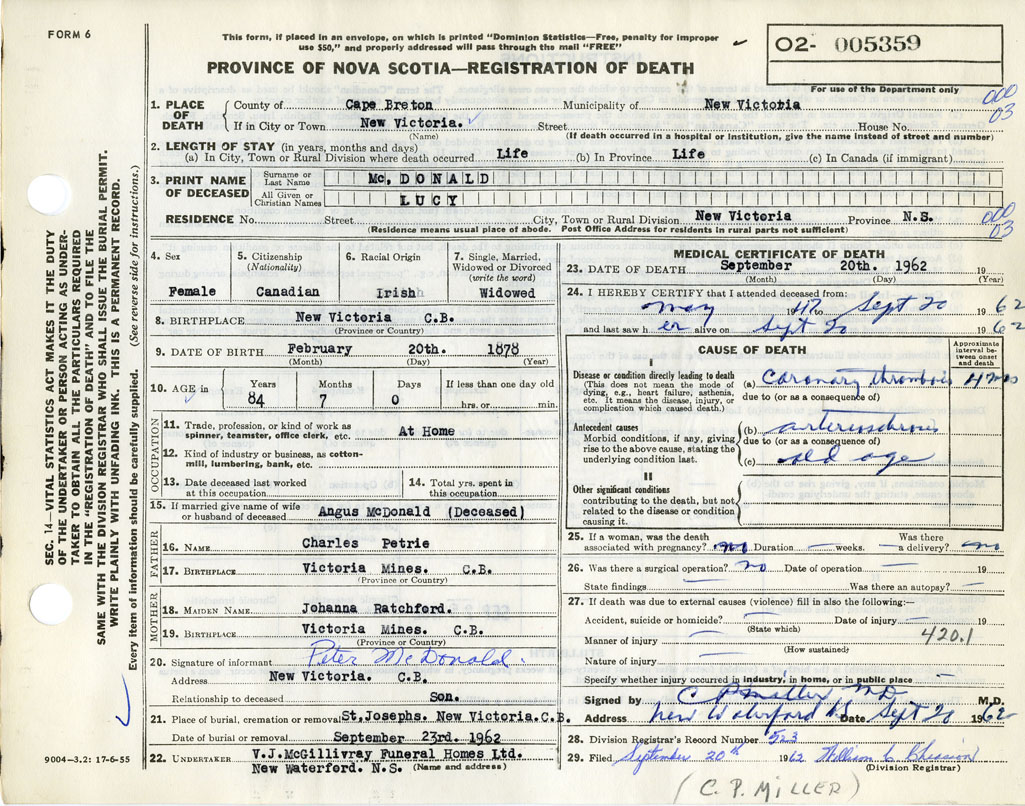 FORM 6
This form, if placed in an envelope, on which is printed "Dominion Statistics—Free, penalty for improper
use $50," and properly addressed will pass through the mail "FREE"
PROVINCE OF NOVA SCOTIA—REGISTRATION OF DEATH
02- 005359
For use of the Department only
SEC. 14—VITAL STATISTICS ACT MAKES IT THE DUTY
OF THE UNDERTAKER OR PERSON ACTING AS UNDER-
TAKER TO OBTAIN ALL THE PARTICULARS REQUIRED
IN THE "REGISTRATION OF DEATH" AND TO FILE THE
SAME WITH THE DIVISION REGISTRAR WHO SHALL ISSUE THE BURIAL PERMIT.
WRITE PLAINLY WITH UNFADING INK. THIS IS A PERMANENT RECORD.
Every item of information should be carefully supplied. (See reverse side for instructions.)
1. PLACE OF DEATH County of Cape Breton Municipality of New Victoria 000 03
If in City or Town New Victoria. Street House No.
(Name) (If death occurred in a hospital or institution, give the name instead of street and number)
2. LENGTH OF STAY (in years, months and days)
(a) In City, Town or Rural Division where death occurred Life (b) In Province Life (c) In Canada (if immigrant)
3. PRINT NAME OF DECEASED Surname or Last Name Mc, DONALD
All Given or Christian Names LUCY
RESIDENCE No. Street City, Town or Rural Division New Victoria Province N.S. 000 03
(Residence means usual place of abode. Post Office Address for residents in rural parts not sufficient)
4. Sex 5. Citizenship (Nationality) 6. Racial Origin 7. Single, Married, Widowed or Divorced (write the word)
Female Canadian Irish Widowed
8. BIRTHPLACE New Victoria C.B.
(Province or Country)
9. DATE OF BIRTH February 20th. 1878
(Month) (Day) (Year)
10. AGE in Years Months Days If less than one day old
84 7 0 hrs. or min.
OCCUPATION
11. Trade, profession, or kind of work as spinner, teamster, office clerk, etc. At Home
12. Kind of industry or business, as cotton-mill, lumbering, bank, etc.
13. Date deceased last worked at this occupation 14. Total yrs. spent in this occupation
15. If married give name of wife or husband of deceased Angus McDonald (Deceased)
FATHER
16. NAME Charles Petrie
17. BIRTHPLACE Victoria Mines. C.B.
(Province or Country)
MOTHER
18. MAIDEN NAME Johanna Ratchford.
19. BIRTHPLACE Victoria Mines. C.B.
(Province or Country)
20. Signature of informant Peter McDonald.
Address New Victoria. C.B.
Relationship to deceased Son.
21. Place of burial, cremation or removal St. Josephs. New Victoria. C.B.
Date of burial or removal September 23rd. 1962
22. UNDERTAKER V.J.McGillivray Funeral Homes Ltd.
New Waterford. N.S. (Name and address)
9004—3.2: 17-6-55
MEDICAL CERTIFICATE OF DEATH
23. DATE OF DEATH September 20th. 1962 19
(Month) (Day) (Year)
24. I HEREBY CERTIFY that I attended deceased from:
May 1947 to Sept 20 1962
and last saw her alive on Sept 20 1962
CAUSE OF DEATH
Approximate interval between onset and death
I
Disease or condition directly leading to death (a) Coronary thrombosis 4 mos
(This does not mean the mode of dying, e.g., heart failure, asthenia, etc. It means the disease, injury, or complication which caused death.) due to (or as a consequence of)
Antecedent causes (b) arteriosclerosis
Morbid conditions, if any, giving rise to the above cause, stating the underlying condition last. due to (or as a consequence of)
(c) old age
II
Other significant conditions
contributing to the death, but not related to the disease or condition causing it.
25. If a woman, was the death associated with pregnancy? no Duration — weeks. Was there a delivery? no
26. Was there a surgical operation? no Date of operation — 19
State findings — Was there an autopsy? —
27. If death was due to external causes (violence) fill in also the following:—
Accident, suicide or homicide? — Date of injury — 19
(State which)
Manner of injury — 420.1
(How sustained)
Nature of injury —
Specify whether injury occurred in industry, in home, or in public place —
Signed by C P Miller MD M.D.
Address New Waterford NS Date Sept 20 1962
28. Division Registrar's Record Number 523
29. Filed September 20th 1962
(Division Registrar)
(C. P. MILLER)